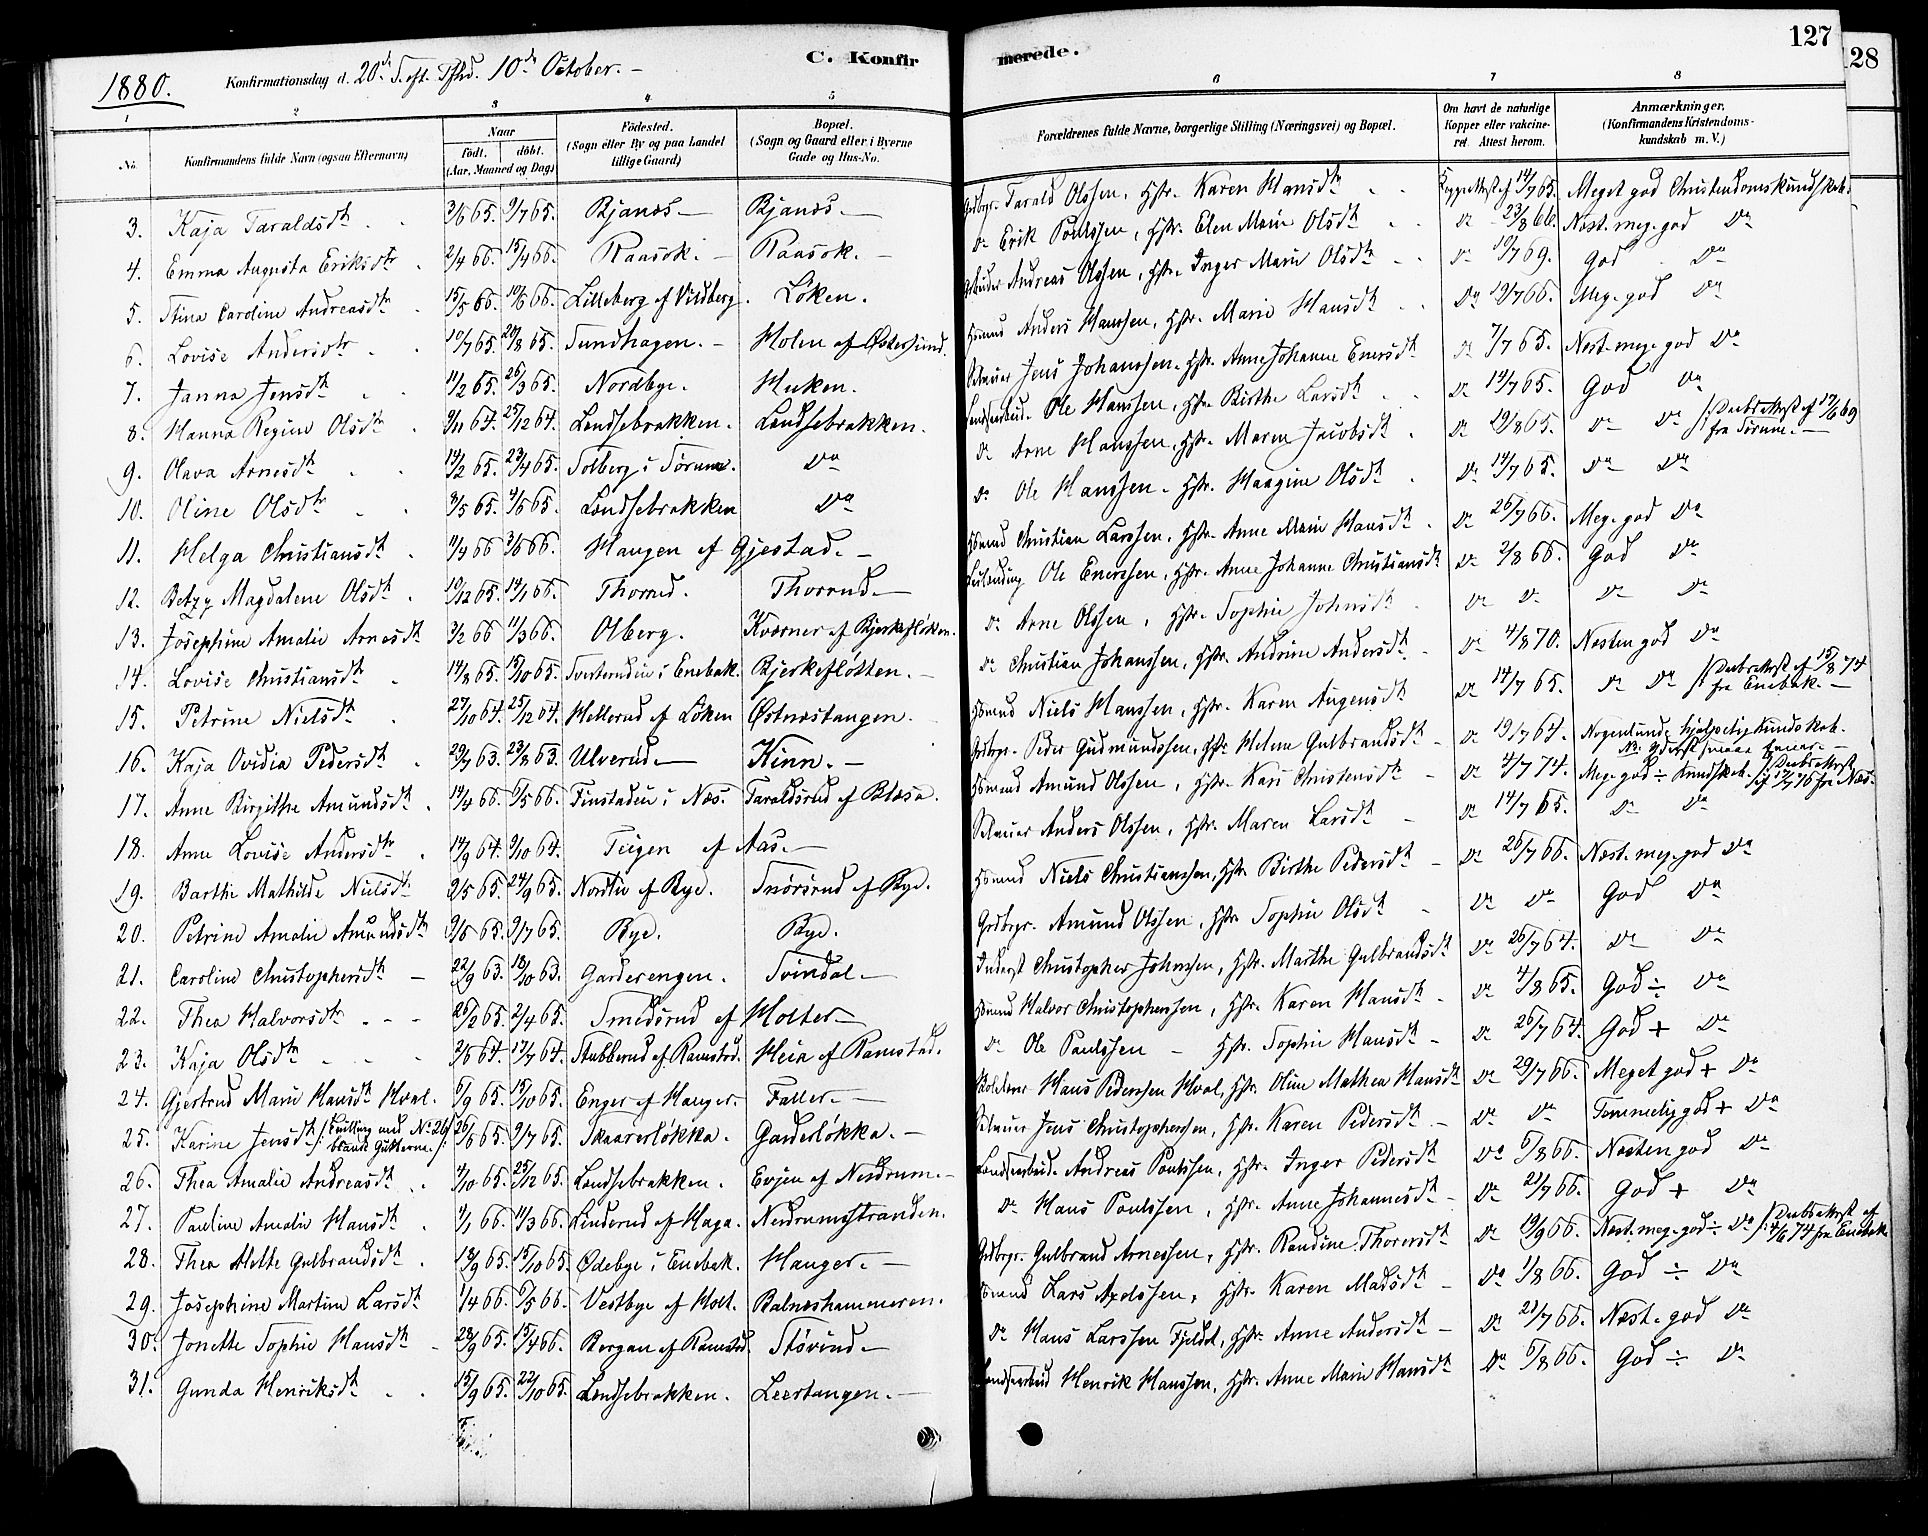 127
28
1880.
Konfirmationsdag d. 20de S. eft. Tfhd. 10de October. -
C. Konfir
merede.
1 2 3 4 5 6 7 8
No. Konfirmandens fulde Navn (ogsaa Efternavn)
Naar
født. døbt.
(Aar, Maaned og Dag)
Fødested.
(Sogn eller By og paa Landet
tillige Gaard)
Bopæl.
(Sogn og Gaard eller i Byerne
Gade og Hus-No.
Forældrenes fulde Navne, borgerlige Stilling (Næringsvei) og Bopæl.
Om havt de naturlige
Kopper eller vakcine-
ret. Attest herom.
Anmærkninger.
(Konfirmandens Kristendoms-
kundskab m. V.)
3. Kaja Taraldsdtr 3/6 65. 9/7 65. Bjanes - Bjanes. - Gdbrgr. Tarald Olssen, Hstr. Karen Hansdtr Koppeattest af 14/7 65. Meget god Christendomskundskab.
4. Emma Augusta Eriksdtr 2/4 66. 15/4 66. Raasok. - Raasok. - Do Erik Poulssen, Hstr. Elen Marie Olsdtr Do 23/8 66. Næst. meg. god Do
5. Stina Caroline Andreasdtr 15/5 66. 10/6 66. Lilleberg af Vildberg. Löken. Andreas Olssen, Hstr. Inger Marie Olsdtr Do 19/7 69. God Do
6. Lovise Andersdtr 10/7 65. 20/8 65. Sundhagen. - Holen af Østersund. Hsmnd Anders Hanssen, Hstr. Marie Hansdtr Do 19/7 66. Meg. god Do
7. Janna Jensdtr 11/2 65. 26/3 65. Nordbye. Huken. Selveier Jens Johanssen, Hstr. Anne Johanne Enersdtr Do 7/7 65. Næst. meg. god Do
8. Hanna Regine Olsdtr 9/11 64. 25/12 64. Lendsebrakken. Lendsebrakken. Lendsearbeid. Ole Hanssen, Hstr. Birthe Larsdtr Do 14/7 65. God Do
9. Olava Arnesdtr 14/2 65. 23/4 65. Solberg i Sørum. Do Do Arne Hanssen, Hstr. Maren Jacobsdtr Do 29/8 65. Do Do /: Daabsattest af 17/6 69
fra Sørum. -
10. Oline Olsdtr 8/5 65. 4/6 65. Lendsebrakken Do Do Ole Hanssen. Hstr. Haagine Olsdtr Do 14/7 65. Do Do
11. Helga Christiansdtr 11/4 66 3/6 66. Haugen af Gjestad. - Hsmnd Christian Larssen, Hstr. Anne Marie Hansdtr Do 26/7 66. Meg. god Do
12. Betzy Magdalene Olsdtr 10/12 65. 14/1 66. Thorrud. Thorrud. - Ole Enerssen, Hstr. Anne Johanne Christiansdtr Do 2/8 66. God Do
13. Josephine Amalie Arnesdtr 3/2 66 11/3 66. Olberg. Kværner af Bjerkefløten. Do Arne Olssen, Hstr. Sophie Johnsdtr Do Do Do Do
14. Lovise Christiansdtr 14/8 65. 15/10 65. i Enebak. Bjerkefløtten. - Do Christian Johanssen, Hstr. Andrine Andersdtr Do 4/8 70. Næsten god Do
15. Petrine Nielsdtr 27/10 64. 25/12 64. Hellerud af Löken Østnestangen. Hsmnd Niels Hanssen, Hstr. Karen Augensdtr Do 14/7 65. Do Do /: Daabsattest af 15/8 74
fra Enebak. -
16. Kaja Ovidia Pedersdtr 29/7 63. 23/8 63. Ulverud. - Kinn. - Gdbrgr. Peder Gudmundssen, Hstr. Helene Gulbrandsdtr Do 19/7 64. Nogenlunde hjælpelig Kundskab.
17. Anne Birgithe Amundsdtr 14/4 66. 6/5 66. Finstadeie i Næs. Taraldsrud af Blæsa. Hsmnd Amund Olssen, Hstr. Kari Christensdtr Do 4/7 74. Meg. god ÷ Kundskab. /: Daabsattest af 17/7 76 fra Næs.
18. Anne Lovise Andersdtr 14/9 64. 9/10 64. Teigen af Aas. - Selveier Anders Olssen, Hstr. Maren Larsdtr Do 14/7 65. Do Do
19. Barthe Mathilde Nielsdtr 2/5 65. 24/9 65. Nordlie af Rye. Snörsrud af Rye. Hsmnd Niels Christianssen, Hstr. Birthe Pedersdtr Do 26/7 66. Næst. meg. god Do
20. Petrine Amalie Amundsdtr 9/5 65. 9/7 65. Rye. Rye. Gdbrgr. Amund Olssen, Hstr. Sophie Olsdtr Do Do God Do
21. Caroline Christophersdtr - 22/9 63. 18/10 63. Garderengen. Svindal - Inderst Christopher Johnssen, Hstr. Marthe Gulbrandsdtr Do 26/7 64. Do Do
22. Thea Halvorsdtr 26/2 65. 2/4 65. Smedsrud af Holter - Hsmnd Halvor Christopherssen, Hstr. Karen Hansdtr Do 4/8 65. God ÷ Do
23. Kaja Olsdtr 3/6 64. 17/7 64. Stubberud af Ramstad. Heia af Ramstad. Do Ole Poulssen - Hstr. Sophie Hansdtr Do 26/7 64. God + Do
24. Gjertrud Marie Hansdtr Hval. 6/9 65. 15/10 65. Enger af Hanger. Faller. - Hans Pederssen Hval, Hstr. Oline Mathea Hansdtr Do 29/7 66. Meget god + Do
25. Karine Jensdtr /: Tvilling med No 26 blandt Gutterne. :/ 26/5 65. 9/7 65. Skaarerløkka. Garderløkka. - Selveier Jens Christopherssen, Hstr. Karen Pedersdtr Do Do Temmelig god + Do
26. Thea Amalie Andreasdtr 4/10 65. 25/12 65. Lendsebrakken. Evjen af Nesdrum. - Lendsearbeid. Andreas Poulssen, Hstr. Inger Pedersdtr Do 6/8 66. Næsten god Do
27. Pauline Amalie Hansdtr 1/1 66. 11/3 66. Linderud af Haga. Nesdrumstranden. Do Hans Poulssen, Hstr. Anne Johannesdtr Do 21/7 66. God + Do
28. Thea Mette Gulbrandsdtr 18/9 65. 15/10 65. Ødebye i Enebak. Hanger. - Gdbrgr. Gulbrand Arnessen, Hstr. Randine Thoresdtr Do 19/9 66. Næst. meg. god ÷ Do /: Daabsattest af
4/6 74 fra Enebak
29. Josephine Martine Larsdtr 1/4 66. 6/5 66. Vestbye af Holt. Balneshammeren. Hsmnd Lars Axelssen, Hstr. Karen Madsdtr Do 1/8 66. God ÷ Do
30. Jonette Sophie Hansdtr 28/9 65. 15/4 66. Bergan af Ramstad. Støvind - Do Hans Larssen Fjeldet, Hstr. Anne Andersdtr Do 21/7 66. Næst. god Do
31. Gunda Henriksdtr 15/9 65. 22/10 65. Lendsebrakken. Leertangen. - Lendsearbeid Henrik Hanssen, Hstr. Anne Marie Hansdtr Do 6/8 66. God ÷ Do